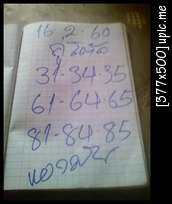 16 2 60
31-34-35
61-64-65
81-84-85
[377x500] upic.me